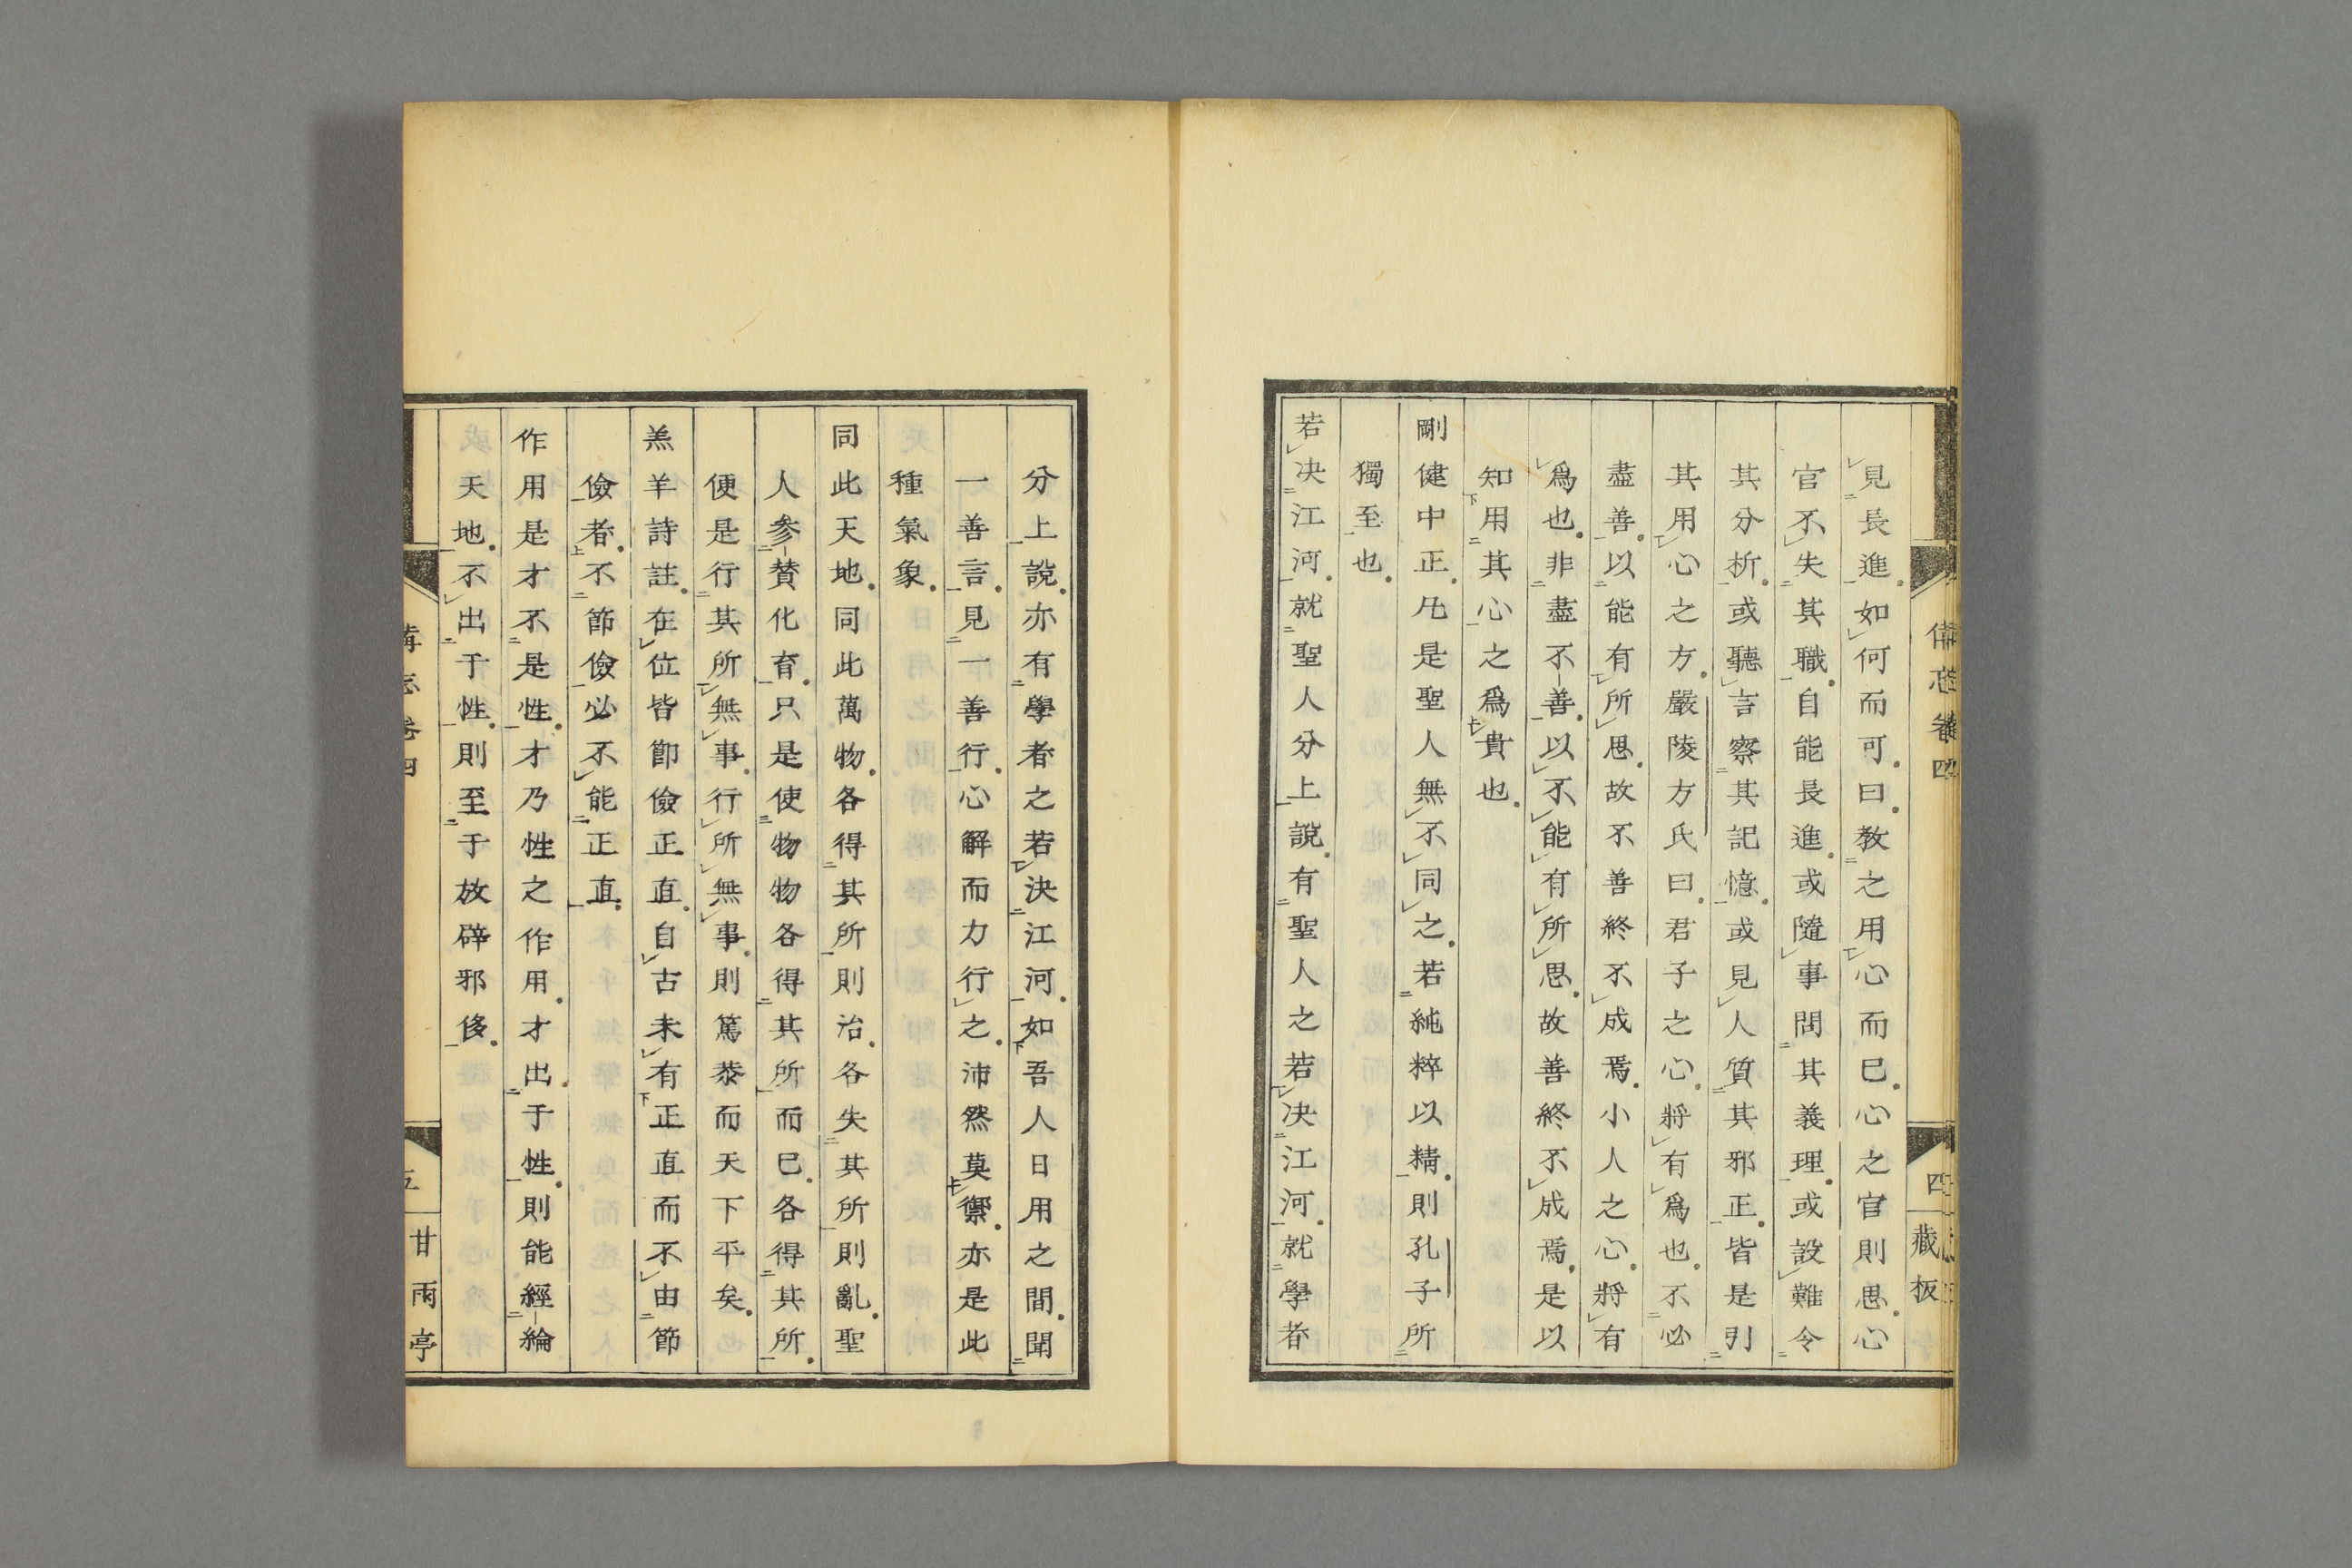 見長進如何而可曰教之用心而已心之官則思心
官不失其職自能長進或隨事問其義理或設難令
其分析或聽言察其記憶或見人質其邪正皆是引
其用心之方嚴陵方氏曰君子之心將有爲也不必
盡善以能有所思故不善終不成焉小人之心將有
爲也非盡不善以不能有所思故善終不成焉是以
知用其心之爲貴也
剛健中正凡是聖人無不同之若純粹以精則孔子所
獨至也
若决江河就聖人分上說有聖人之若决江河就學者
四
藏板
分上說亦有學者之若決江河如吾人日用之間聞
一善言見一善行心解而力行之沛然莫禦亦是此
種氣象
同此天地同此萬物各得其所則治各失其所則亂聖
人參贊化育只是使物物各得其所而已各得其所
便是行其所無事行所無事則篤恭而天下平矣
羔羊詩註在位皆節儉正直自古未有正直而不由節
儉者不節儉必不能正直
作用是才不是性才乃性之作用才出于性則能經綸
天地不出于性則至于放辟邪侈
五
甘雨亭